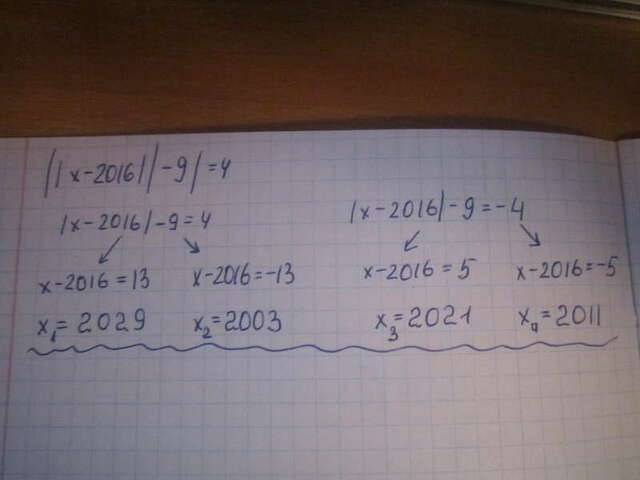 ||x-2016||-9|=4
|x-2016|-9=4
|x-2016|-9=-4
x-2016=13 x-2016=-13
x-2016=5 x-2016=-5
x₁=2029 x₂=2003
x₃=2021 x₄=2011